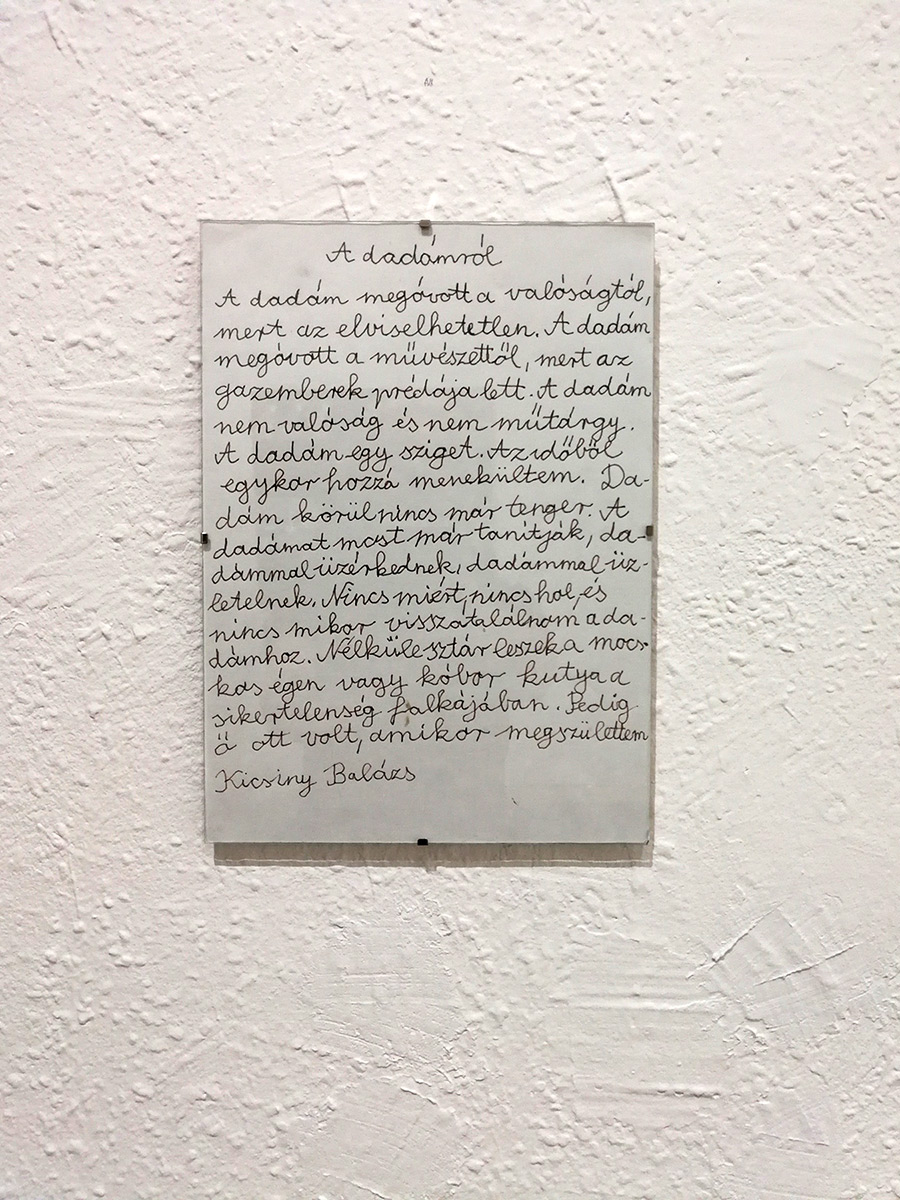 A dadámról
A dadám megóvott a valóságtól,
mert az elviselhetetlen. A dadám
megóvott a művészettől, mert az
gazemberek prédája lett. A dadám
nem valóság és nem műtárgy.
A dadám egy sziget. Az időből
egykor hozzá menekültem. Da-
dám körül nincs már tenger. A
dadámat most már tanítják, da-
dámmal üzérkednek, dadámmal üz-
letelnek. Nincs miért, nincs hol, és
nincs mikor visszatalálnom a da-
dámhoz. Nélküle sztár leszek a mocs-
kos égen vagy kóbor kutya a
sikertelenség falkájában. Pedig
ő ott volt, amikor megszülettem
Kicsiny Balázs